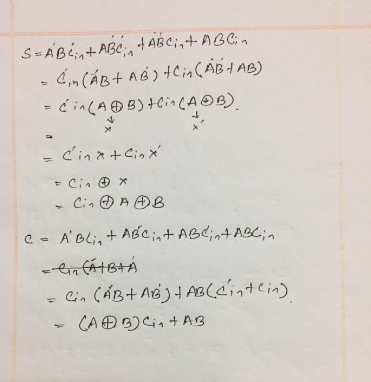 S = A'BC'in + AB'C'in + A'B'Cin + ABCin
= C'in (A'B + AB') + Cin (A'B' + AB)
= C'in (A ⊕ B) + Cin (A ⊕ B)'.
↓ ↓
x x'
=
= C'in x + Cin x'
= Cin ⊕ x
= Cin ⊕ A ⊕ B
C = A'BCin + AB'Cin + ABC'in + ABCin
= Cin (A'+B+A
= Cin (A'B + AB') + AB (C'in + Cin)
= (A ⊕ B) Cin + AB